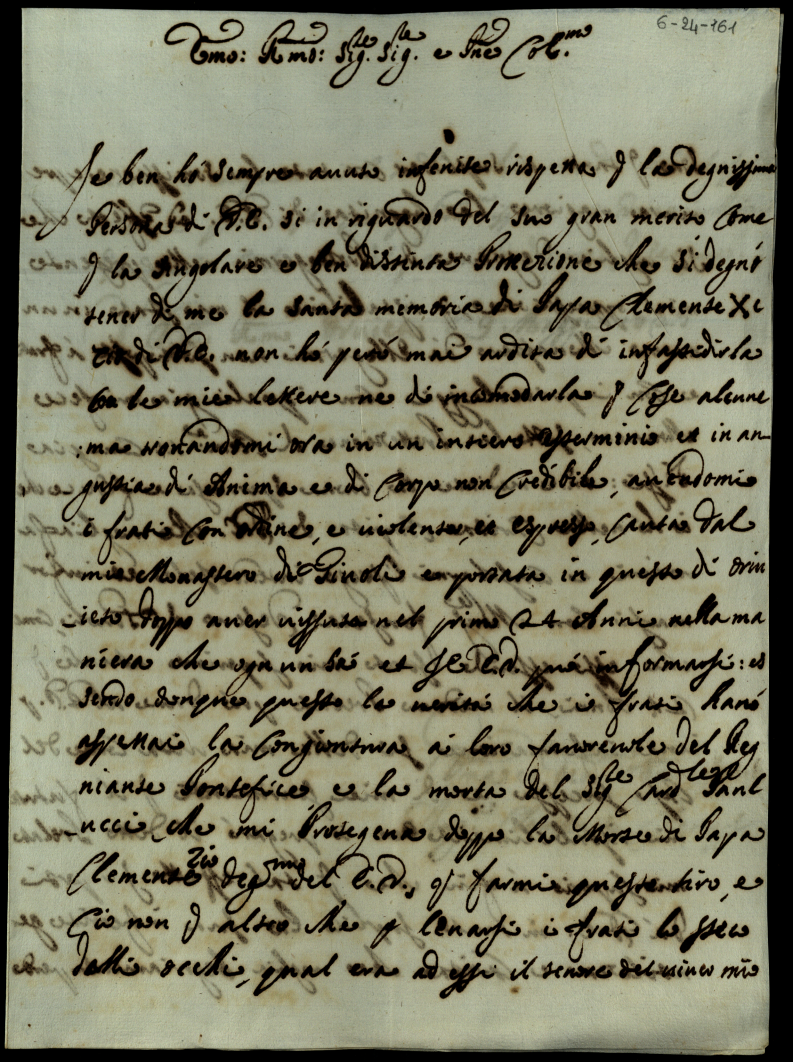 6-24-161
Emo: Rmo: Sig.re Sig.re e Pne Col.mo
Se ben hò sempre auuto infenito rispetto p la degnissima
Persona di V.E. si in riguardo del suo gran merito Come
p la singolare e ben distinta Protezione che si degnò
tener di me la santa memoria di Papa Clemente X e
di V.E. non hò però mai ardito di infastidirla
Con le mie lettere ne di incomodarla p Cose alcune
:ma trouandomi ora in un intiero esterminio et in an-
gustia di Anima e di Corpo non Credibile, auendomi
i frati Con ordine, e uiolento, et espresso, Cauata dal
mio Monastero di Tiuoli e portata in questo di Orui
-ieto doppo auer uissuto nel primo 24 Anni nella ma
niera che ogn un sà et Se V.E. può informarsi: es
sendo donque questo la uerità che i frati hanò
aspettai la Congiontura à loro fauoreuole del Reg
niante Pontefice e la morte del Sig.re Card.le Paul
-ucci che mi Protegeua doppo la Morte di Papa
Clemente Zio deg.mo del V.E., p farmi questo tiro, e
Ciò non p altro che p leuarsi i frati lo steco
dalli occhi, qual era ad essi il tenore del uiuer mio